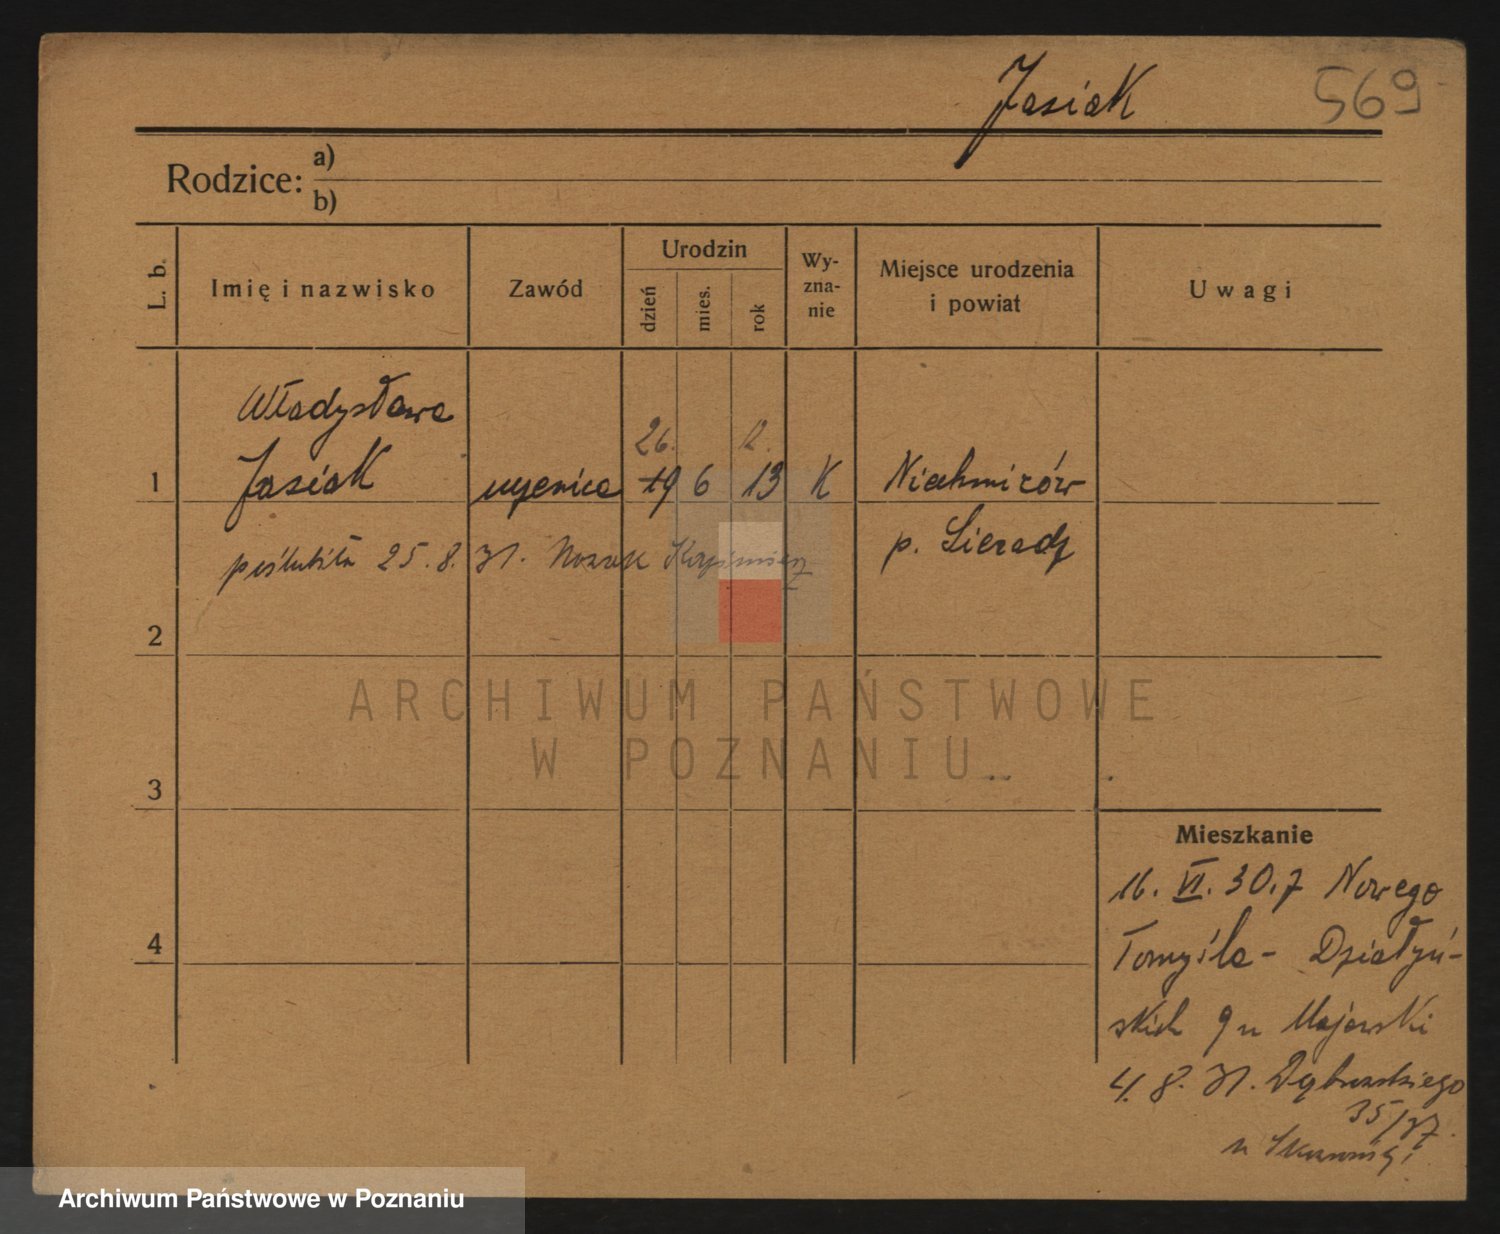 Jasiak 569
Rodzice: a)
b)
L. b. Imię i nazwisko Zawód Urodzin dzień mies. rok Wy-zna-nie Miejsce urodzenia i powiat Uwagi
Władysława
26. 12.
1 Jasiak 19 6 13 K Niechmirów
p. Sieradz
poślubiła 25.8.31. Nowak Kazimierz
2
ARCHIWUM PAŃSTWOWE
W POZNANIU
3
Mieszkanie
16. VI. 30. z Nowego
4 Tomyśla - Działyń-
skich 9 u Majewski
4. 8. 31. Dąbrowskiego
35/37.
u
Archiwum Państwowe w Poznaniu